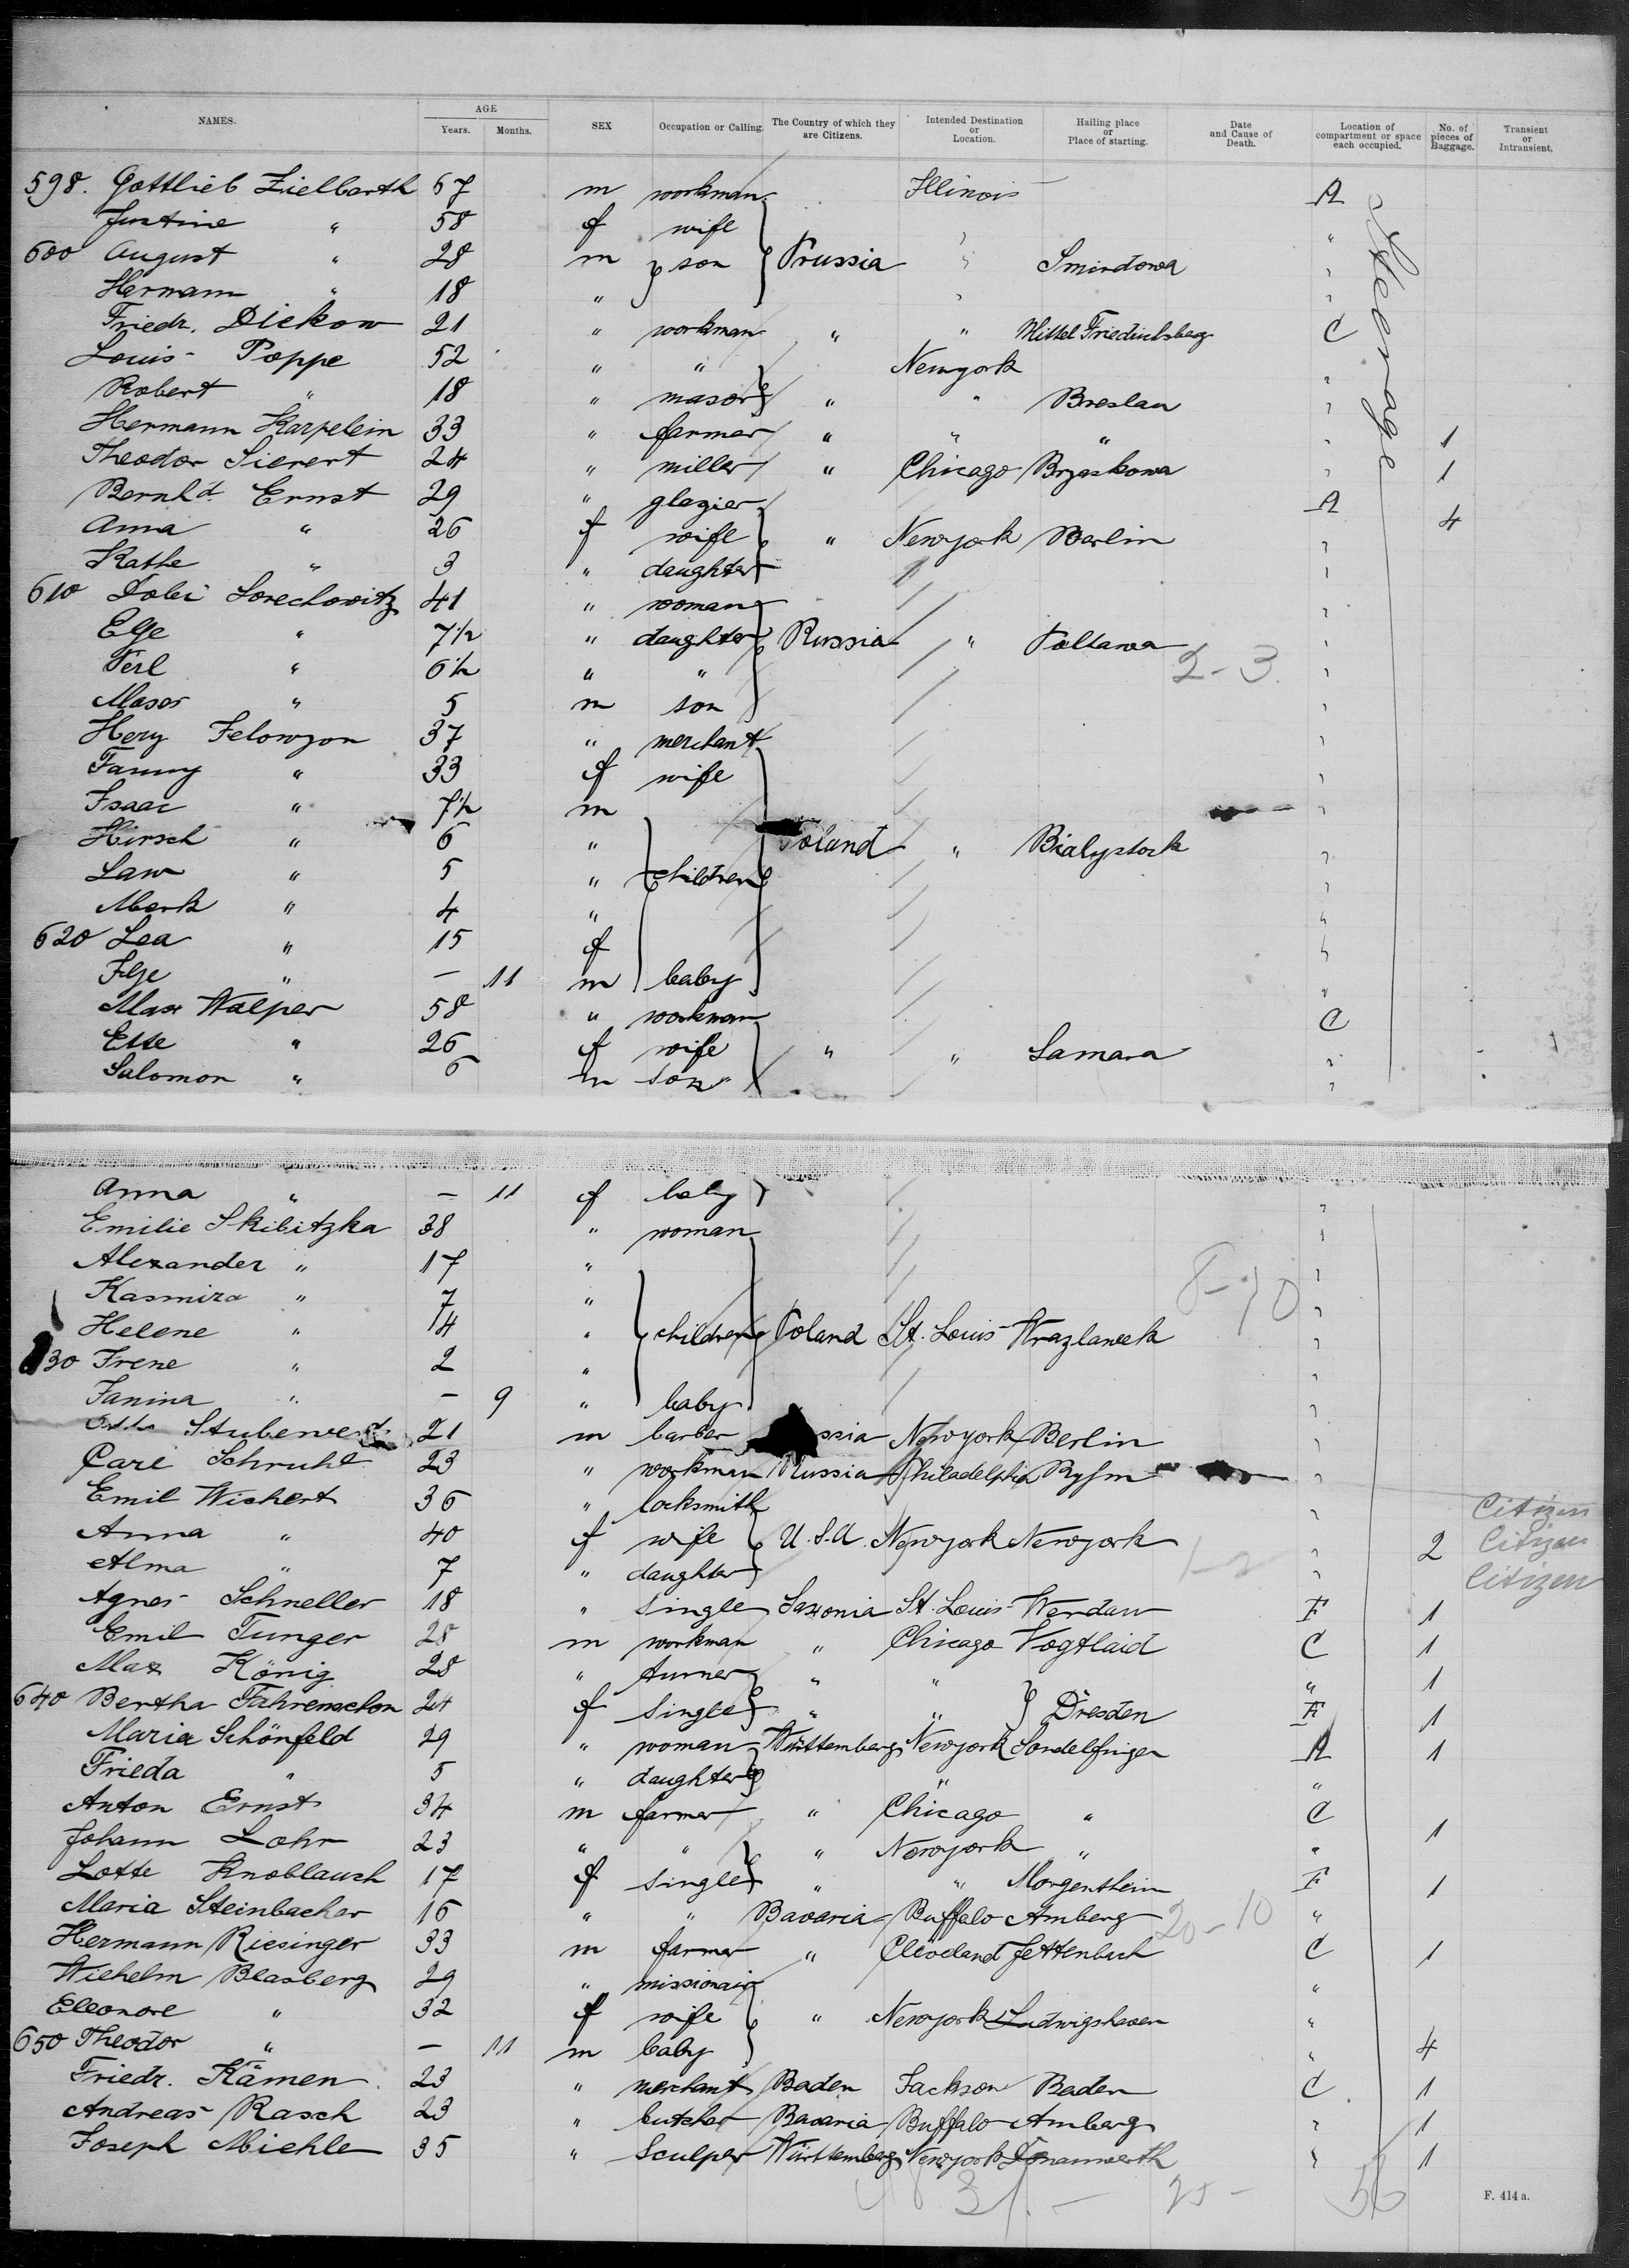 NAMES. AGE Years. Months. SEX Occupation or Calling. The Country of which they are Citizens. Intended Destination or Location. Hailing place or Place of starting. Date and Cause of Death. Location of compartment or space each occupied. No. of pieces of Baggage. Transient or Intransient.
598. Gottlieb Zielbarth 57 m workman Illinois A
Justine " 58 f wife "
600 August " 28 m son Prussia " Smirdowa "
Hermann " 18 " " "
Friedr. Dickow 21 " workman " " Mittel Friedrichsberg C
Louis Poppe 52 " " Newyork
Robert " 18 " mason " " Breslau "
Hermann Karpelein 33 " farmer " " " " 1
Theodor Sierert 24 " miller " Chicago Bryaskowa " 1
Bernhd Ernst 29 " glazier A 4
Anna " 26 f wife " Newyork Berlin "
Kathe " 3 " daughter "
610 Dobi Sorechowitz 41 " woman "
Elje " 7½ " daughter Russia " Poltawa "
2-3.
Perl " 6½ " " "
Moses " 5 m son "
Hery Felowzon 37 " merchant "
Fanny " 33 f wife "
Isaac " 7½ m "
Hirsch " 6 " Poland " Bialystock "
Law " 5 " children "
Mark " 4 " "
620 Lea " 15 f "
Ilje " — 11 m baby "
Max Walper 58 " workman C
Ette " 26 f wife " " Samara "
Salomon " 6 m son "
Steerage
Anna " — 11 f baby "
Emilie Skibitzka 38 " woman "
Alexander " 17 " "
Kasmira " 7 " "
8-10
Helene " 14 " children Poland St. Louis Wrazlaweck "
630 Irene " 2 " "
Janina " — 9 " baby "
Otto 21 m barber Newyork Berlin "
Carl Schruhl 23 " workman Russia Philadelphia "
Emil Wichert 36 " locksmith " Citizen
Anna " 40 f wife U.S.A. Newyork Newyork " 2 Citizen
Alma " 7 " daughter " Citizen
Agnes Schneller 18 " single Saxonia St. Louis Werdau F 1
Emil Tunger 28 m workman " Chicago Vogtlaid C 1
Max König 28 " turner " " " 1
640 Bertha Fahrenschon 24 f single " " Dresden F 1
Maria Schönfeld 29 " woman Württemberg Newyork Sondelfingen A 1
Frieda " 5 " daughter " "
Anton Ernst 34 m farmer " Chicago " C
Johann Lohr 23 " " " Newyork " " 1
Lotte Knoblauch 17 f single " " Morgentheim F 1
Maria Steinbacher 16 " " Bavaria Buffalo Amberg "
20-10
Hermann Riesinger 33 m farmer " Cleveland Jettenbach C 1
Wilhelm Blasberg 29 " missionair "
Eleonore " 32 f wife " Newyork Ludwigshaven "
650 Theodor " — 11 m baby " 4
Friedr. Kämen 23 " merchant Baden Jackson Baden C 1
Andreas Rasch 23 " butcher Bavaria Buffalo Amberg " 1
Joseph Miehle 35 " Sculper Württemberg Newyork Donauwerth " 1
F. 414 a.